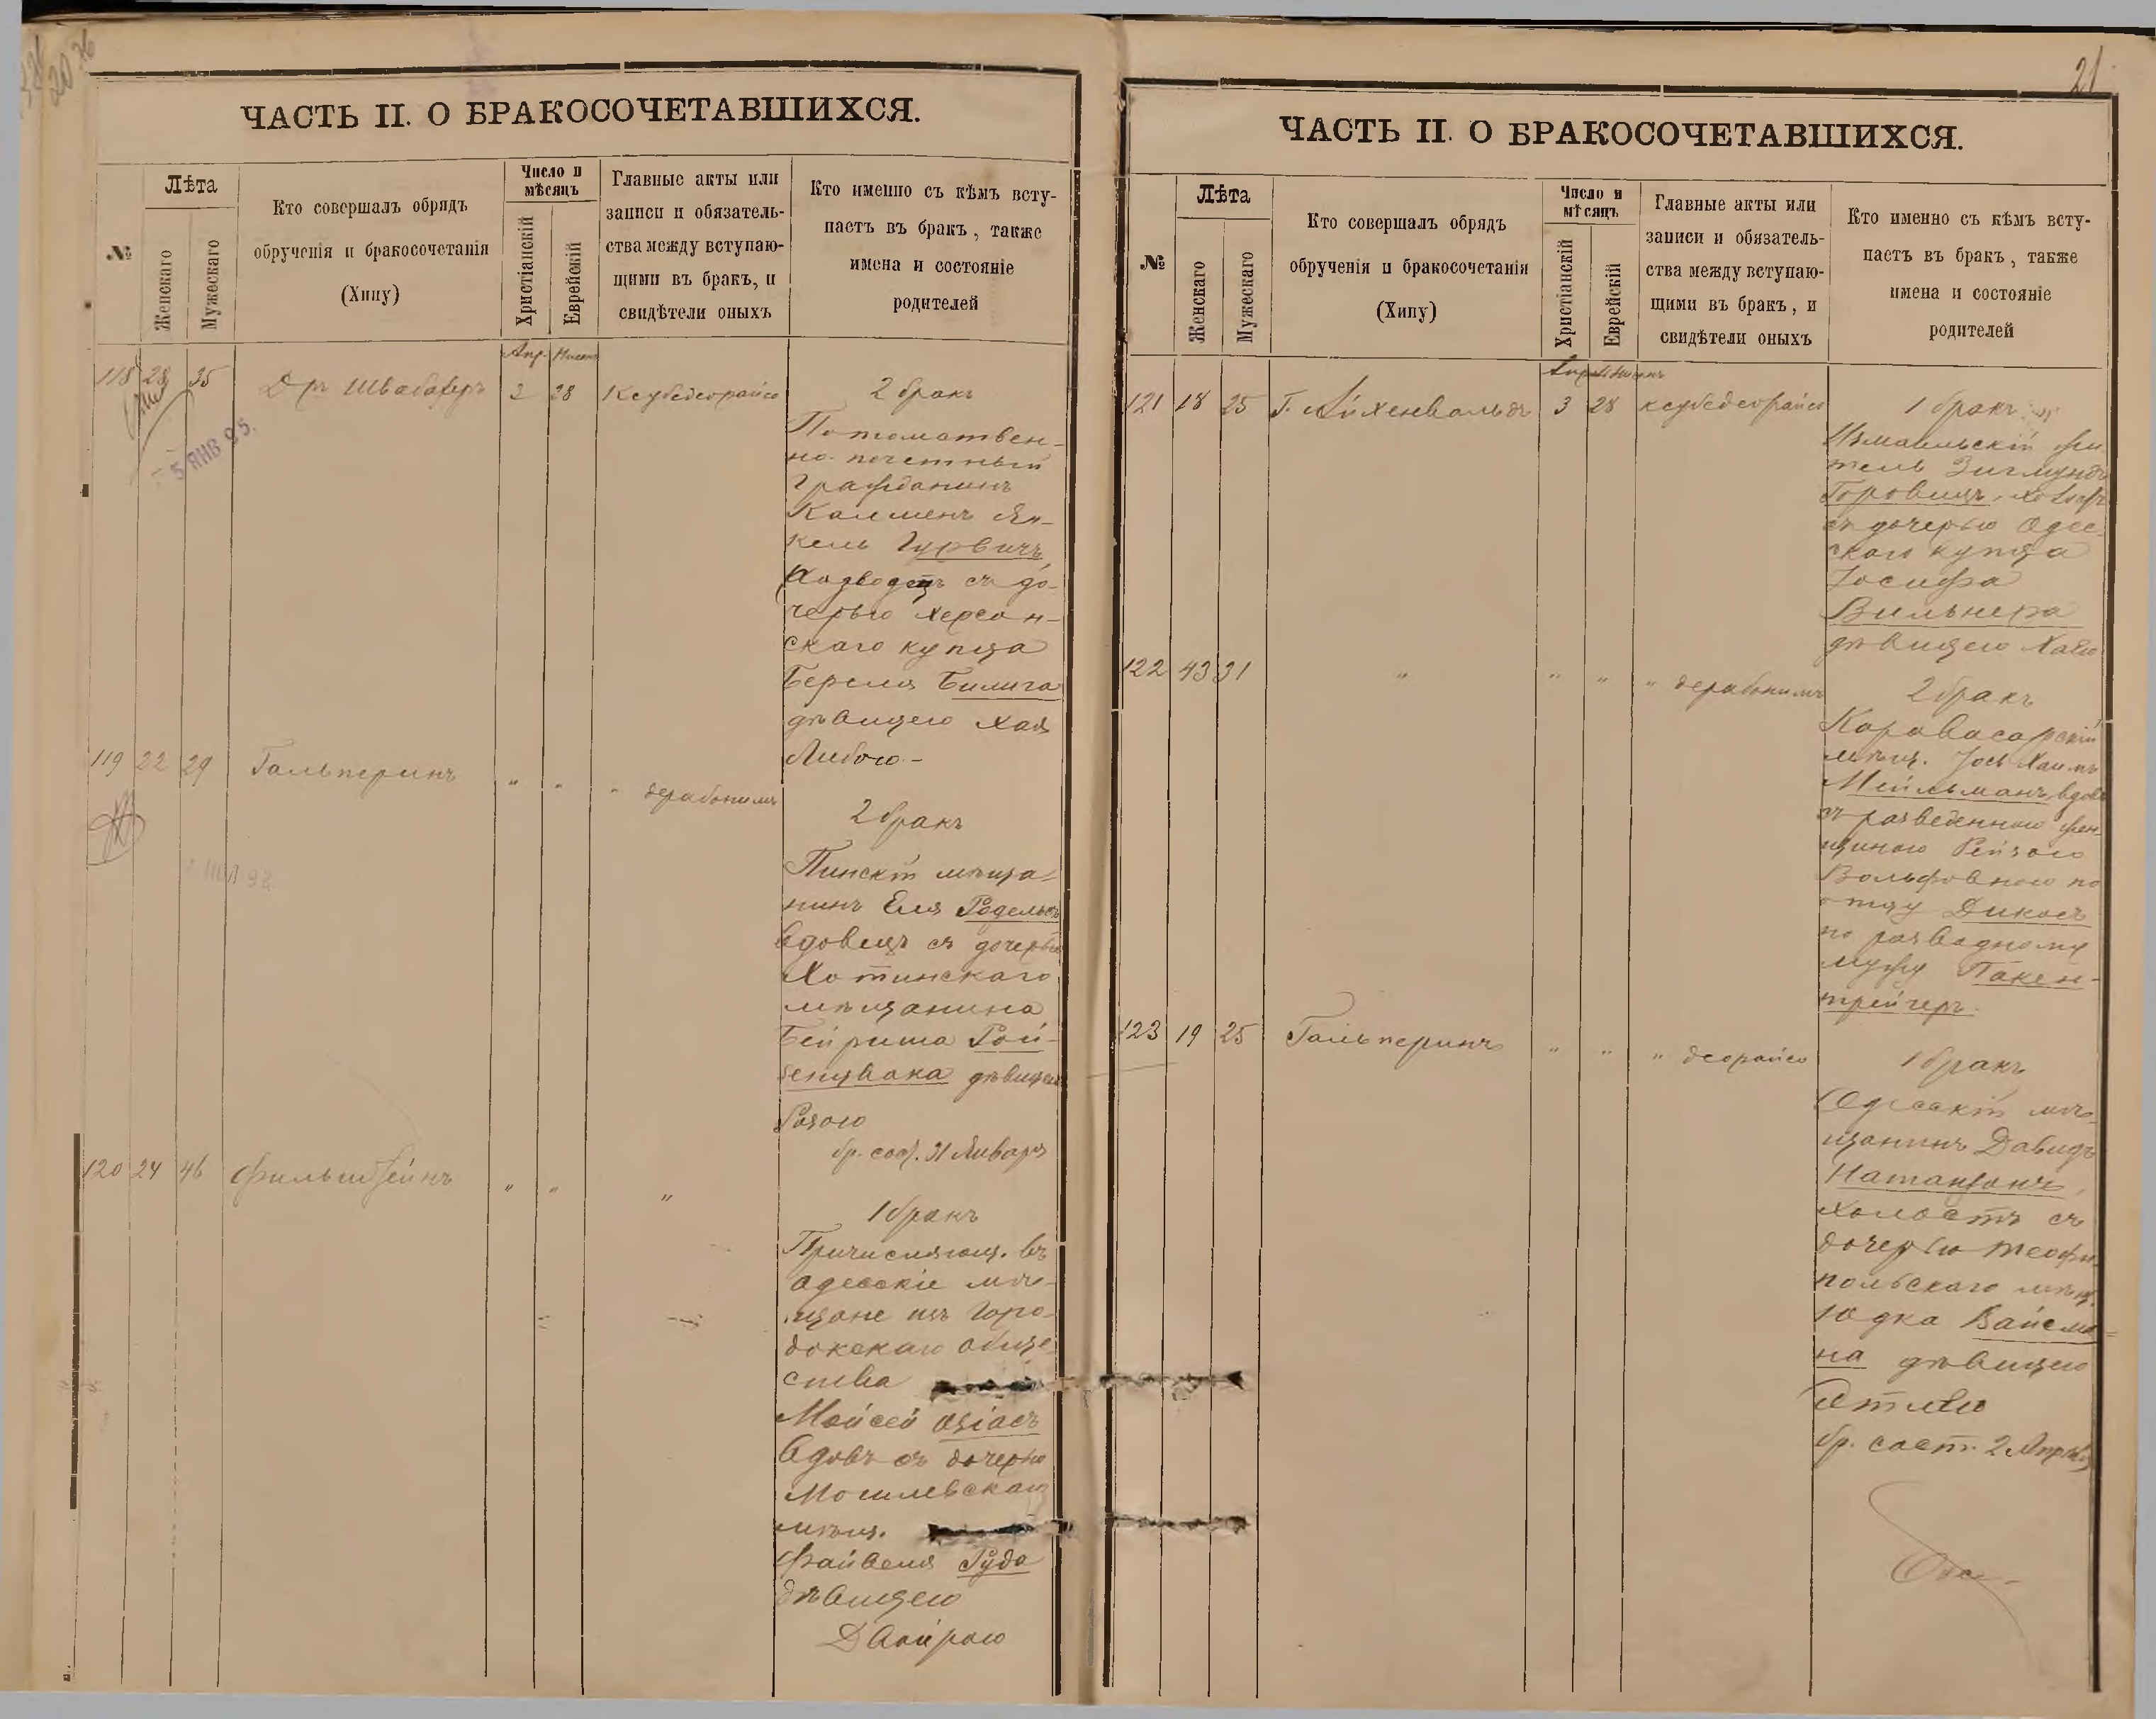 20
ЧАСТЬ II. О БРАКОСОЧЕТАВШИХСЯ.
№
Лѣта
Женскаго
Мужескаго
Кто совершалъ обрядъ
обрученія и бракосочетанія
(Хипу)
Число и
мѣсяцъ
Христіанскій
Еврейскій
Главные акты или
записи и обязатель-
ства между вступаю-
щими въ бракъ, и
свидѣтели оныхъ
Кто именно съ кѣмъ всту-
паетъ въ бракъ, также
имена и состояніе
родителей
Апр.
118 28 35 Дръ Швабахеръ 3 28 Ксубедеорайсо
5 ЯНВ 95.
2 бракъ
Потомствен-
но почетный
Гражданинъ
Калменъ Ян-
кель Гурвичъ,
Разводецъ съ до-
черью Херсон-
скаго купца
Береля Билига
дѣвицею Хая
Либою-
119 22 29 Гальперинъ " " " дерабонимъ
2 бракъ
Пинскій мѣща-
нинъ Еля
вдовецъ съ дочерью
Хотинскаго
мѣщанина
Бейриша Рой-
дѣвицею
Розою
бр. сост. 31 Января
120 24 46 Фильштейнъ " " "
1 бракъ
Причисляющ. въ
Одесскіе мѣ-
щане изъ Горо-
докскаго обще-
ства
Мойсей Озіасъ
Вдовъ съ дочерью
Могилевскаго
мѣщ.
Файвеля Руда
дѣвицею
Двойрою
21
ЧАСТЬ II. О БРАКОСОЧЕТАВШИХСЯ.
№
Лѣта
Женскаго
Мужескаго
Кто совершалъ обрядъ
обрученія и бракосочетанія
(Хипу)
Число и
мѣсяцъ
Христіанскій
Еврейскій
Главные акты или
записи и обязатель-
ства между вступаю-
щими въ бракъ, и
свидѣтели оныхъ
Кто именно съ кѣмъ всту-
паетъ въ бракъ, также
имена и состояніе
родителей
121 18 25 Г. Айхенвальдъ 3 28 ксубедеорайсо
1 бракъ
Измаильскій жи-
тель Зигмундъ
Горовицъ, холост
съ дочерью Одес-
скаго купца
Іосифа
Вильнера
дѣвицею Хаею
122 43 31 " " " " дерабонимъ
2 бракъ
Каравасарскій
мѣщ. Іось Хаимъ
Мейльманъ, вдовъ
съ разведенною жен-
щиною Рейзою
Вольфовною по
отцу Дикосъ
по разводному
мужу Пакен-
трейгеръ.
123 19 25 Гальперинъ " " " деорайсо
1 бракъ
Одесскій мѣ-
щанинъ Давидъ
Натанзонъ,
холостъ съ
дочерью Теофи-
польскаго мѣщ.
Юдка Вайсма-
на дѣвицею
Этлею
бр. сост. 2 Апрѣля